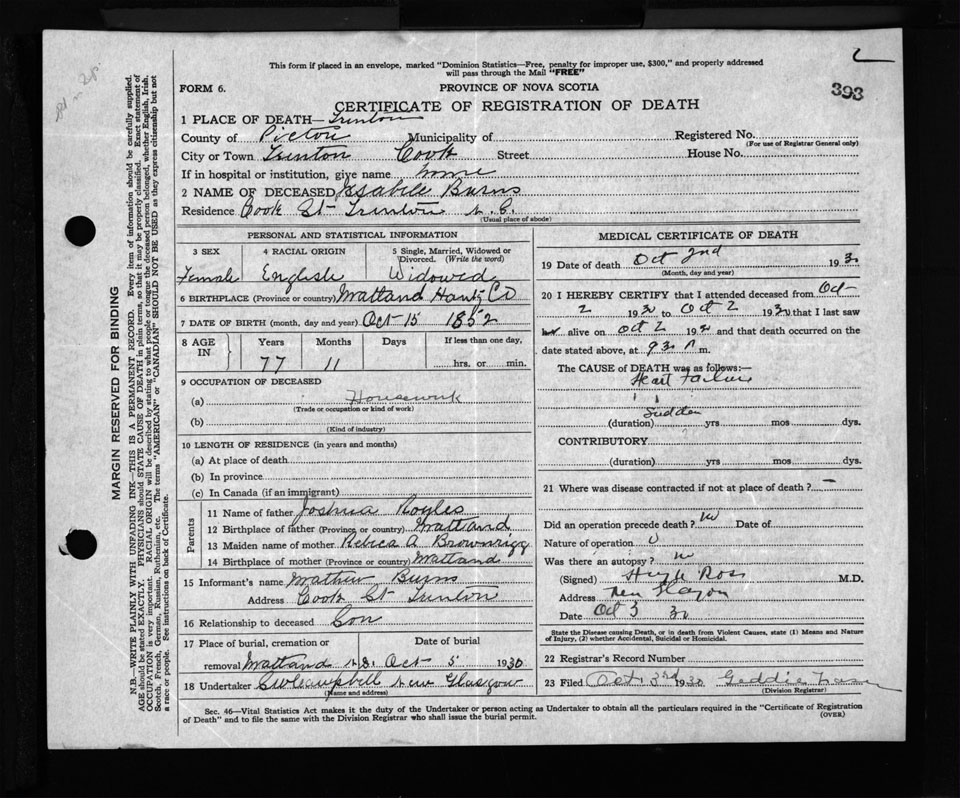 393
This form if placed in an envelope, marked "Dominion Statistics—Free, penalty for improper use, $300," and properly addressed
will pass through the Mail "FREE"
FORM 6.
PROVINCE OF NOVA SCOTIA
CERTIFICATE OF REGISTRATION OF DEATH
1 PLACE OF DEATH— Trenton
County of Pictou Municipality of Registered No.
(For use of Registrar General only)
City or Town Trenton Cook Street House No.
If in hospital or institution, give name home
2 NAME OF DECEASED Isabele Burns
Residence Cook St Trenton N.S.
(Usual place of abode)
PERSONAL AND STATISTICAL INFORMATION
3 SEX 4 RACIAL ORIGIN 5 Single, Married, Widowed or
Divorced. (Write the word)
Female English Widowed
6 BIRTHPLACE (Province or country) Maitland Hants Co
7 DATE OF BIRTH (month, day and year) Oct 15 1852
8 AGE IN Years Months Days If less than one day,
77 11 hrs. or min.
9 OCCUPATION OF DECEASED
(a) Housework
(Trade or occupation or kind of work)
(b)
(Kind of industry)
10 LENGTH OF RESIDENCE (in years and months)
(a) At place of death
(b) In province
(c) In Canada (if an immigrant)
Parents
11 Name of father Joshua Royles
12 Birthplace of father (Province or country) Maitland
13 Maiden name of mother Rebeca A Brownrigg
14 Birthplace of mother (Province or country) Maitland
15 Informant's name Mathew Burns
Address Cook St Trenton
16 Relationship to deceased Son
17 Place of burial, cremation or Date of burial
removal Maitland N.S. Oct 5 1930
18 Undertaker Campbell New Glasgow
(Name and address)
MEDICAL CERTIFICATE OF DEATH
19 Date of death Oct 2nd 1930
(Month, day and year)
20 I HEREBY CERTIFY that I attended deceased from Oct
2 1930 to Oct 2 1930 that I last saw
her alive on Oct 2 1930 and that death occurred on
date stated above, at 930 m.
The CAUSE of DEATH was as follows:—
Heart Failure
Sudden
(duration) yrs mos dys.
CONTRIBUTORY
(duration) yrs mos dys.
21 Where was disease contracted if not at place of death? —
Did an operation precede death? No Date of
Nature of operation 0
Was there an autopsy? No
(Signed) Hugh Ross M.D.
Address New Glasgow
Date Oct 3 30
State the Disease causing Death, or in death from Violent Causes, state (1) Means and Nature
of Injury, (2) whether Accidental, Suicidal or Homicidal.
22 Registrar's Record Number
23 Filed Oct 3rd 1930 Geddie
(Division Registrar)
Sec. 46—Vital Statistics Act makes it the duty of the Undertaker or person acting as Undertaker to obtain all the particulars required in the "Certificate of Registration
of Death" and to file the same with the Division Registrar who shall issue the burial permit.
(OVER)
MARGIN RESERVED FOR BINDING
N.B.—WRITE PLAINLY WITH UNFADING INK—THIS IS A PERMANENT RECORD. Every item of information should be carefully supplied.
AGE should be stated EXACTLY. PHYSICIANS should STATE CAUSE OF DEATH in plain terms, so that it may be properly classified. Exact statement of
OCCUPATION is very important. RACIAL ORIGIN will be described by stating to what people or tongue the deceased person belonged, whether English, Irish,
Scotch, French, German, Russian, Ruthenian, etc. The terms "AMERICAN" or "CANADIAN" SHOULD NOT BE USED as they express citizenship but not
a race or people. See instructions on back of Certificate.